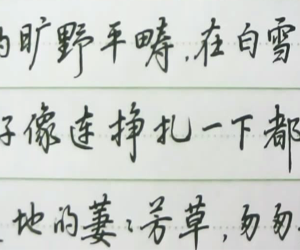 的旷野平畴，在白雪
好像连挣扎一下都
地的萋萋芳草，匆匆